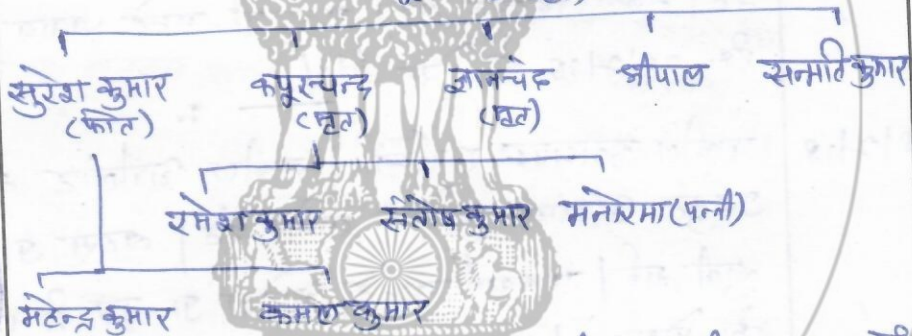 सुरेश कुमार कपूरचन्द ज्ञानचंद श्रीपाल सन्मति कुमार
(फौत) (मृत) (मृत)
रमेश कुमार संतोष कुमार मनोरमा (पत्नी)
महेन्द्र कुमार कमल कुमार